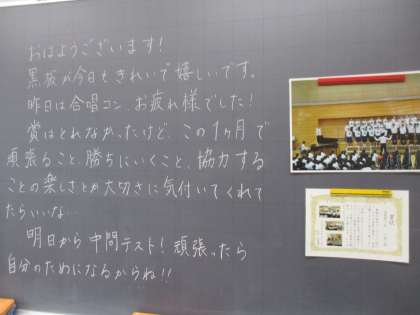 おはようございます!
黒板が今日もきれいで嬉しいです。
昨日は合唱コン、お疲れ様でした!
賞はとれなかったけど、この1ヶ月で
頑張ること、勝ちにいくこと、協力する
ことの楽しさとか大切さに気付いてくれて
たらいいな…
明日から中間テスト!頑張ったら
自分のためになるからね!!